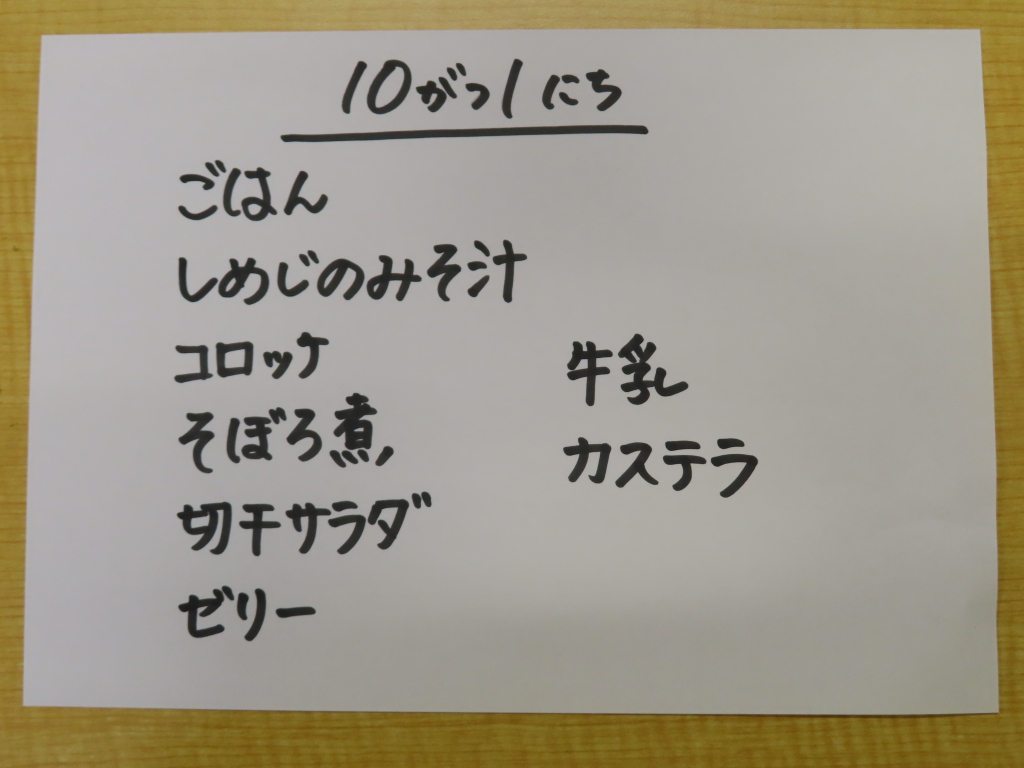 10がつ1にち
ごはん
しめじのみそ汁
コロッケ
そぼろ煮
切干サラダ
ゼリー
牛乳
カステラ